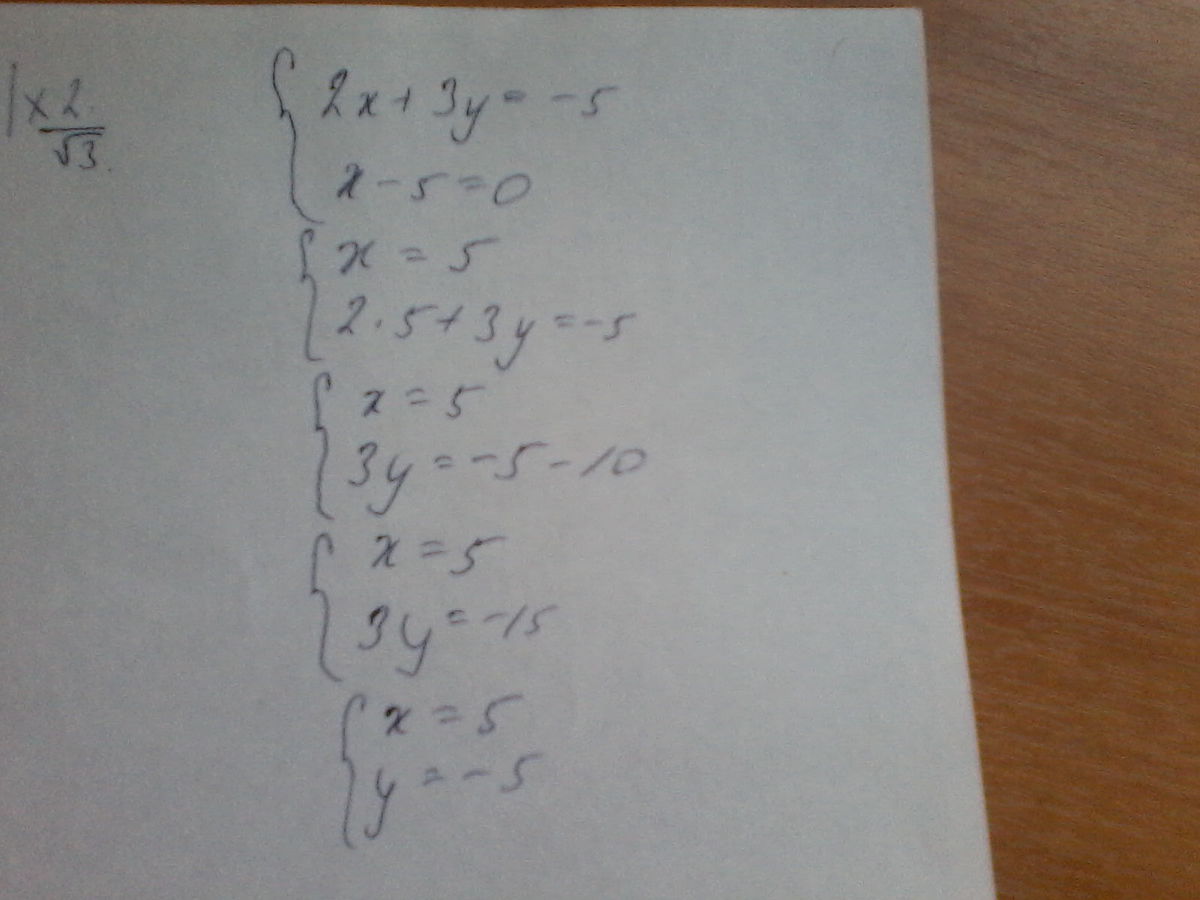 | x 2
√3
2x + 3y = -5
x - 5 = 0
x = 5
2 · 5 + 3y = -5
x = 5
3y = -5 - 10
x = 5
3y = -15
x = 5
y = -5